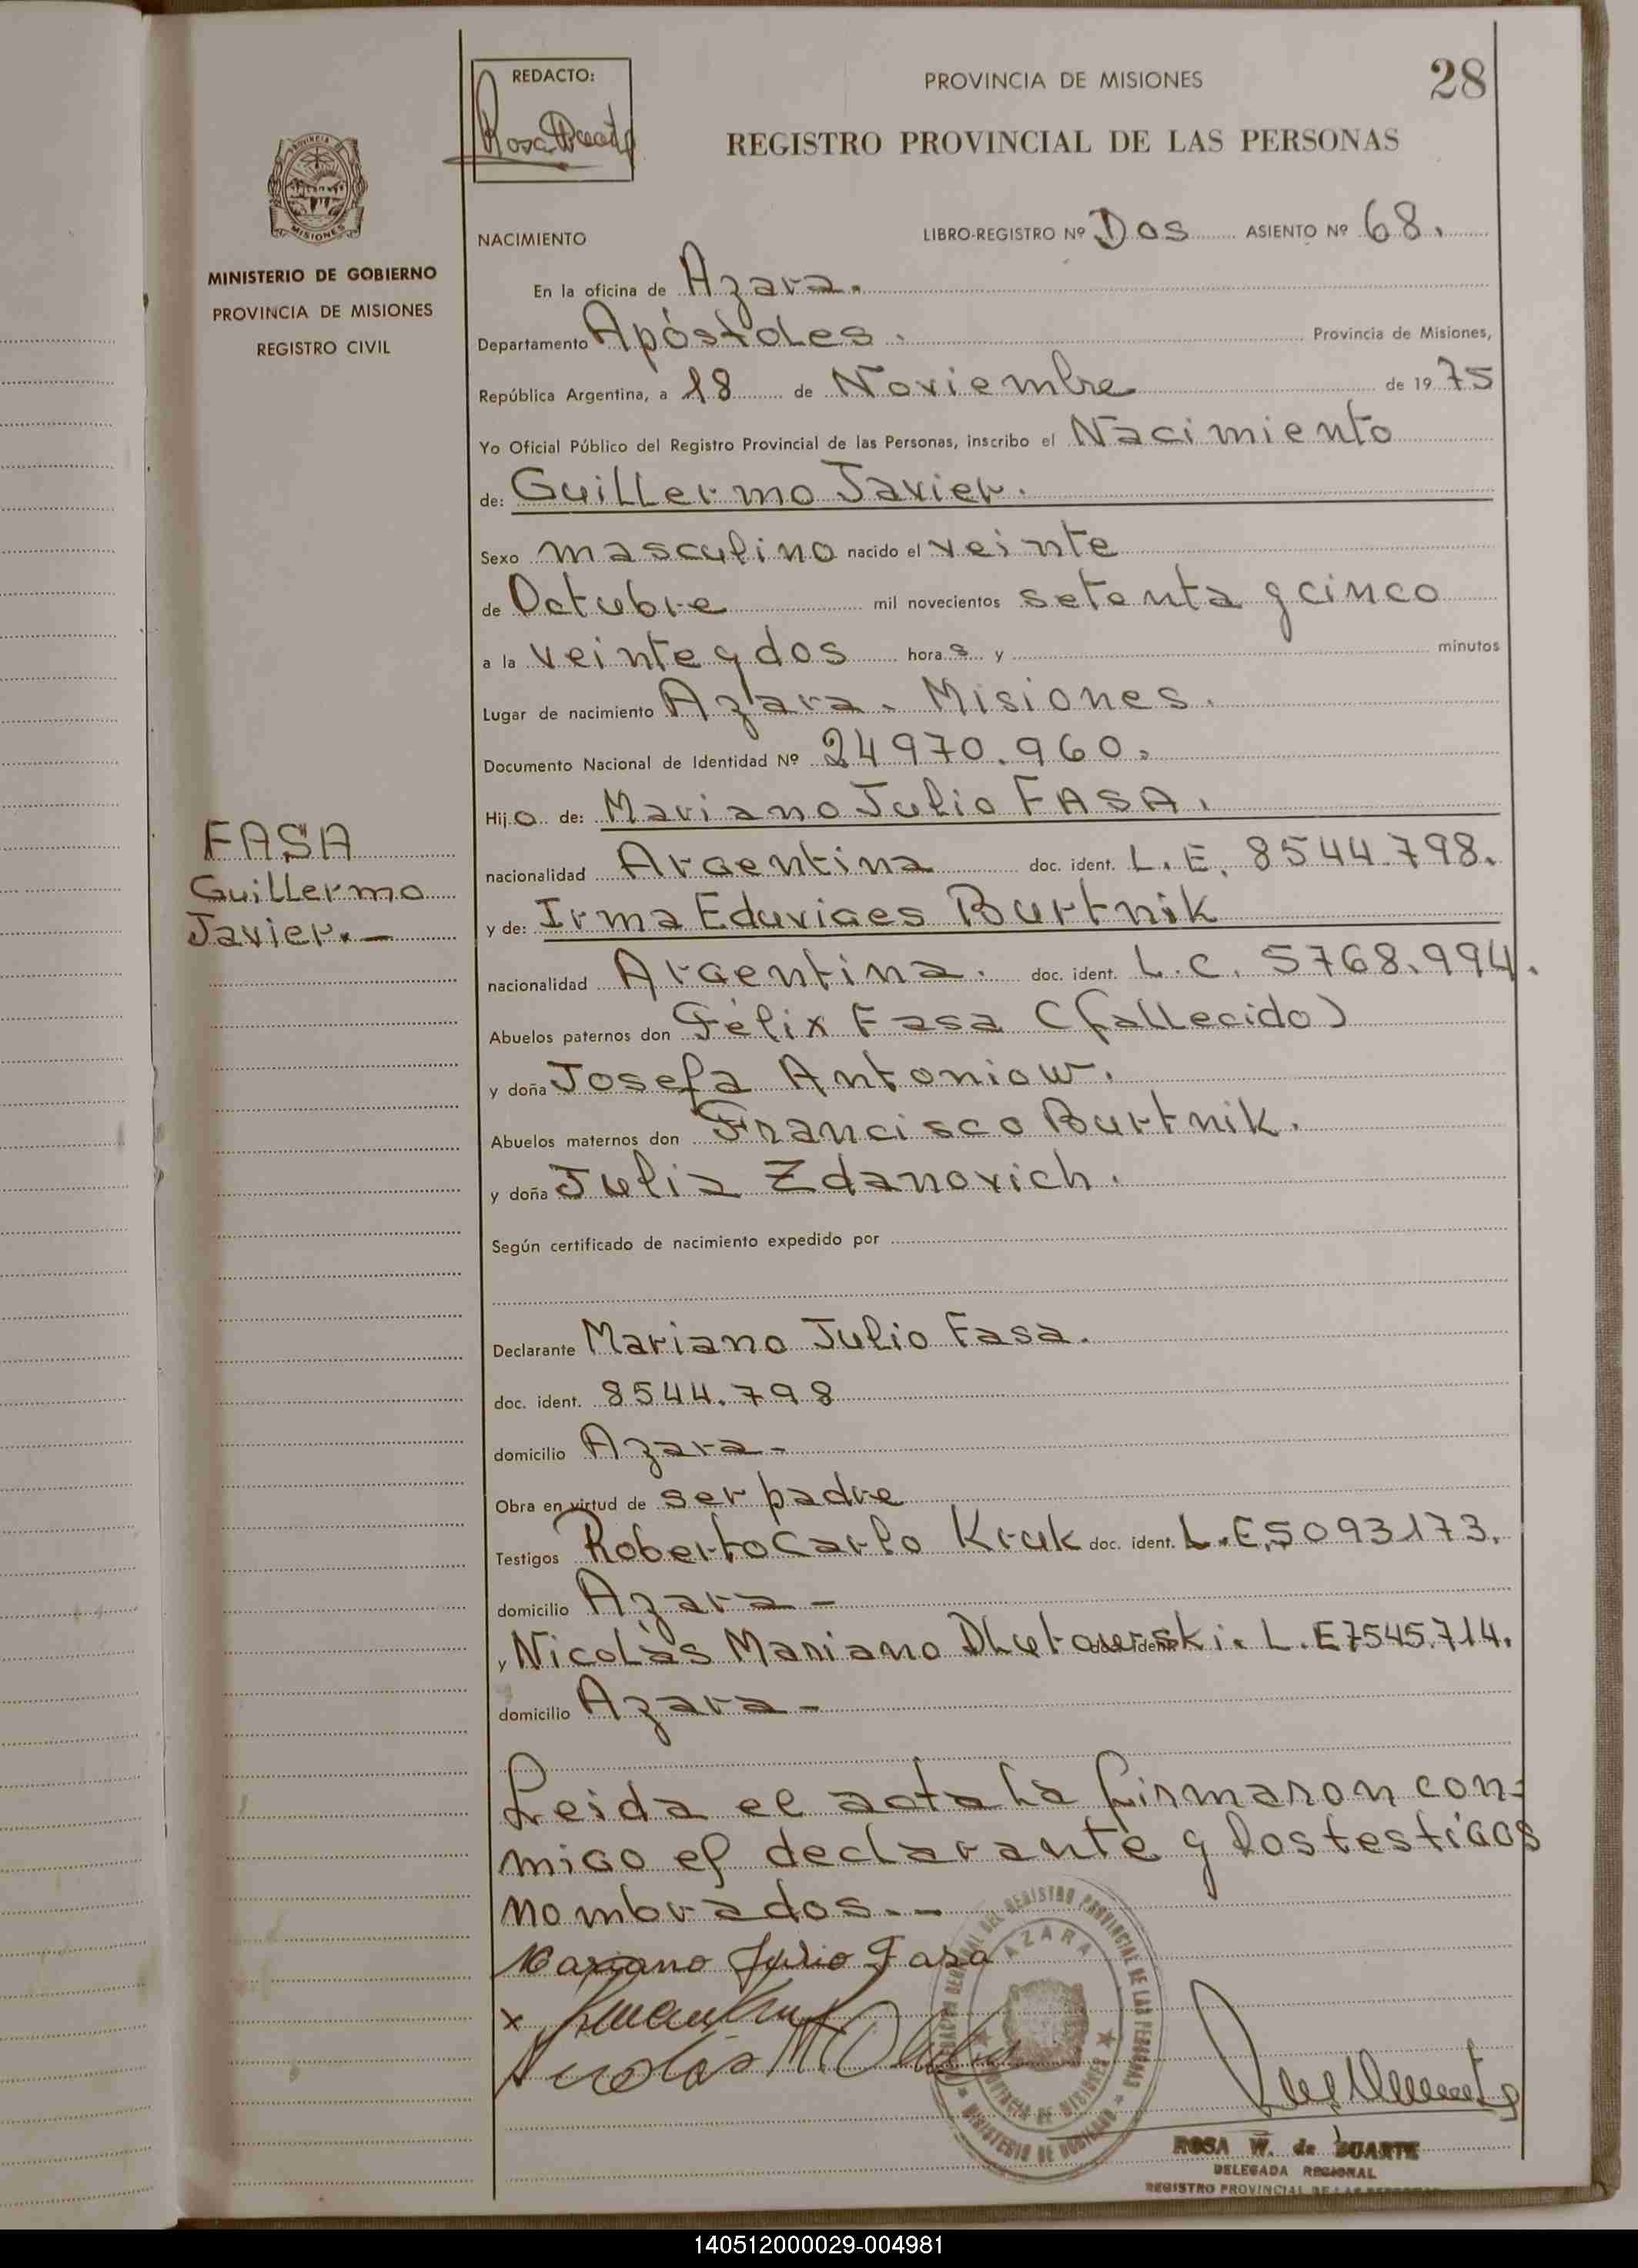 REDACTO:
PROVINCIA DE MISIONES
28
REGISTRO PROVINCIAL DE LAS PERSONAS
PROVINCIA DE
MISIONES
MINISTERIO DE GOBIERNO
PROVINCIA DE MISIONES
REGISTRO CIVIL
NACIMIENTO
LIBRO-REGISTRO Nº Dos ASIENTO Nº 68.
En la oficina de Azara.
Departamento Apóstoles. Provincia de Misiones,
República Argentina, a 18 de Noviembre de 1975
Yo Oficial Público del Registro Provincial de las Personas, inscribo el Nacimiento
de: Guillermo Javier.
Sexo masculino nacido el veinte
de Octubre mil novecientos setenta y cinco
a la veinte y dos horas y minutos
Lugar de nacimiento Azara. Misiones.
Documento Nacional de Identidad Nº 24970.960.
Hijo de: Mariano Julio FASA.
nacionalidad Argentina doc. ident. L.E. 8544.798.
y de: Irma Eduviges Burtnik
nacionalidad Argentina. doc. ident. L.C. 5768.994.
Abuelos paternos don Félix Fasa (fallecido)
y doña Josefa Antoniow.
Abuelos maternos don Francisco Burtnik.
y doña Julia Zdanovich.
Según certificado de nacimiento expedido por
Declarante Mariano Julio Fasa.
doc. ident. 8544.798
domicilio Azara-
Obra en virtud de ser padre
Testigos Roberto Carlo Kruk doc. ident. L.E.5093173.
domicilio Azara-
y Nicolás Mariano L.E7545.714.
domicilio Azara-
Leida el acta la firmaron con=
migo el declarante y los testigos
nombrados.-
Mariano Julio Fasa
FASA
Guillermo
Javier.-
AZARA
REGISTRO PROVINCIAL DE LAS PERSONAS
PROVINCIA DE MISIONES
MINISTERIO DE GOBIERNO
ROSA W. de DUARTE
DELEGADA REGIONAL
REGISTRO PROVINCIAL DE LAS PERSONAS
140512000029-004981